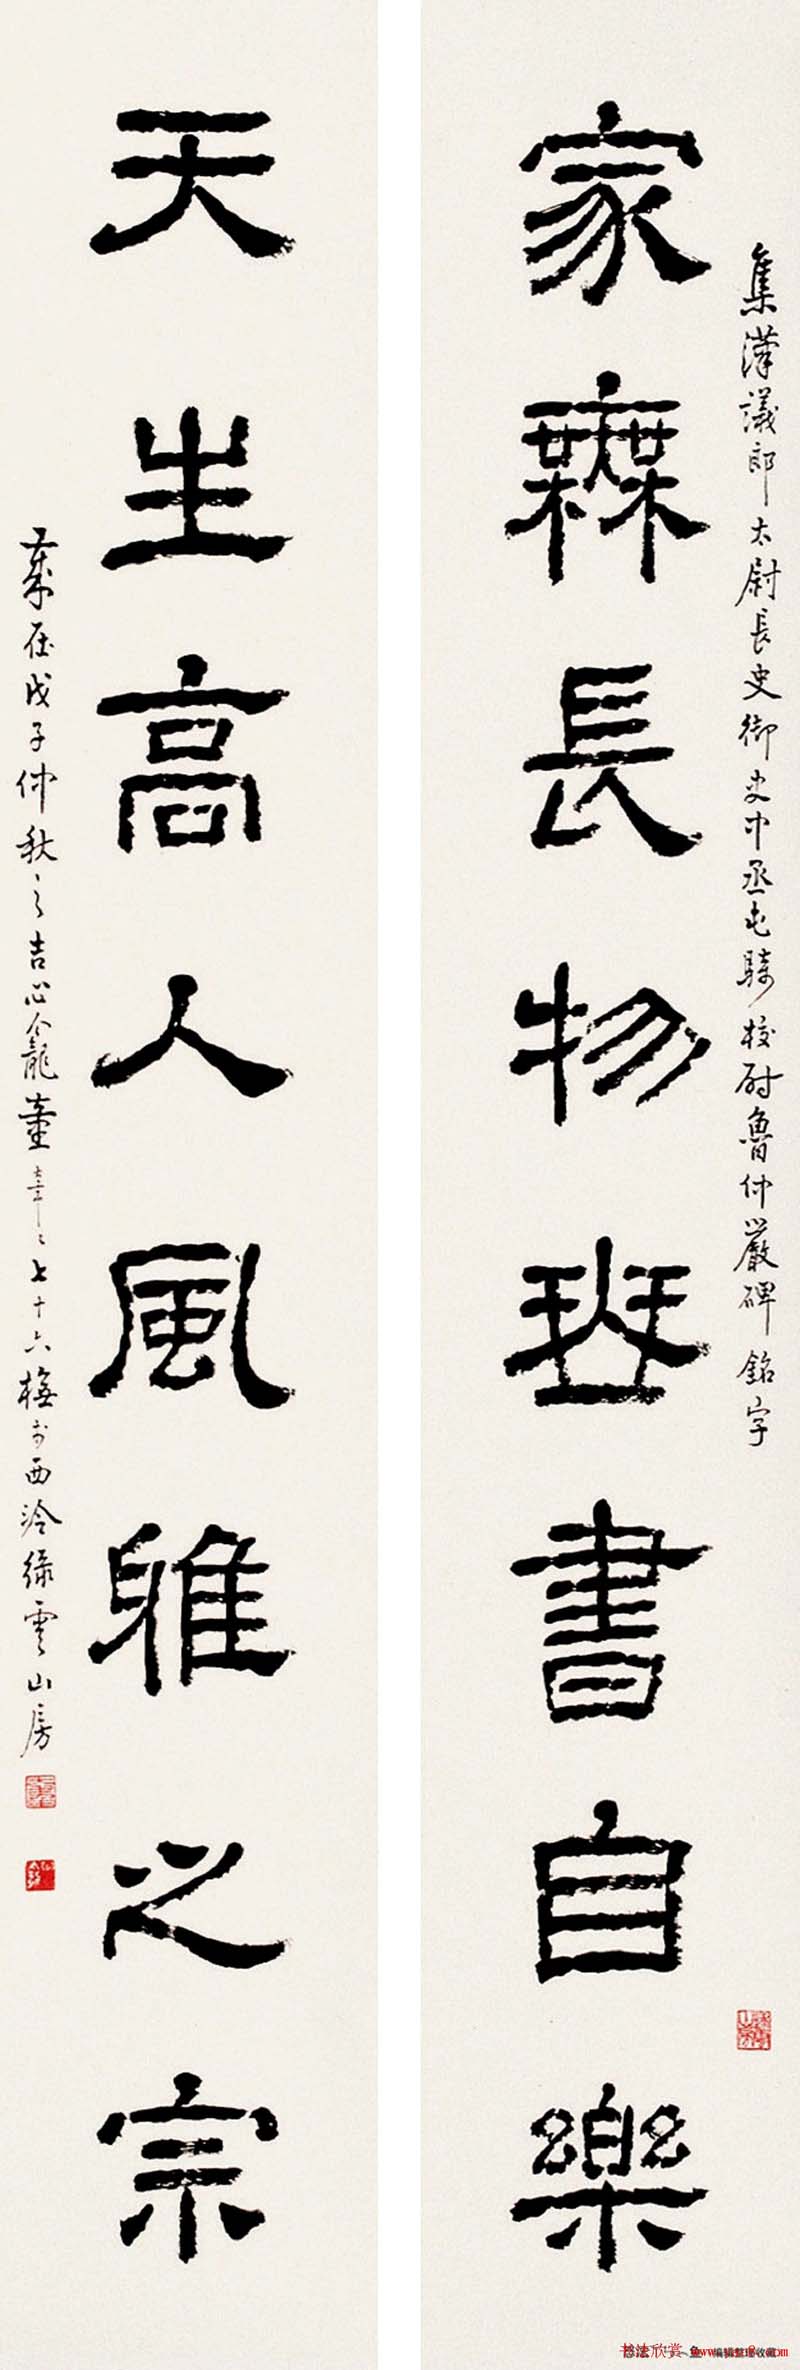 集漢議郎太尉長史御史中丞屯騎校尉魯仲嚴碑銘字
家無長物班書自樂
天生高人風雅之宗
歲在戊子仲秋之吉心龕童 年七十六 於西泠緑雲山房
书法欣赏
编辑整理收藏